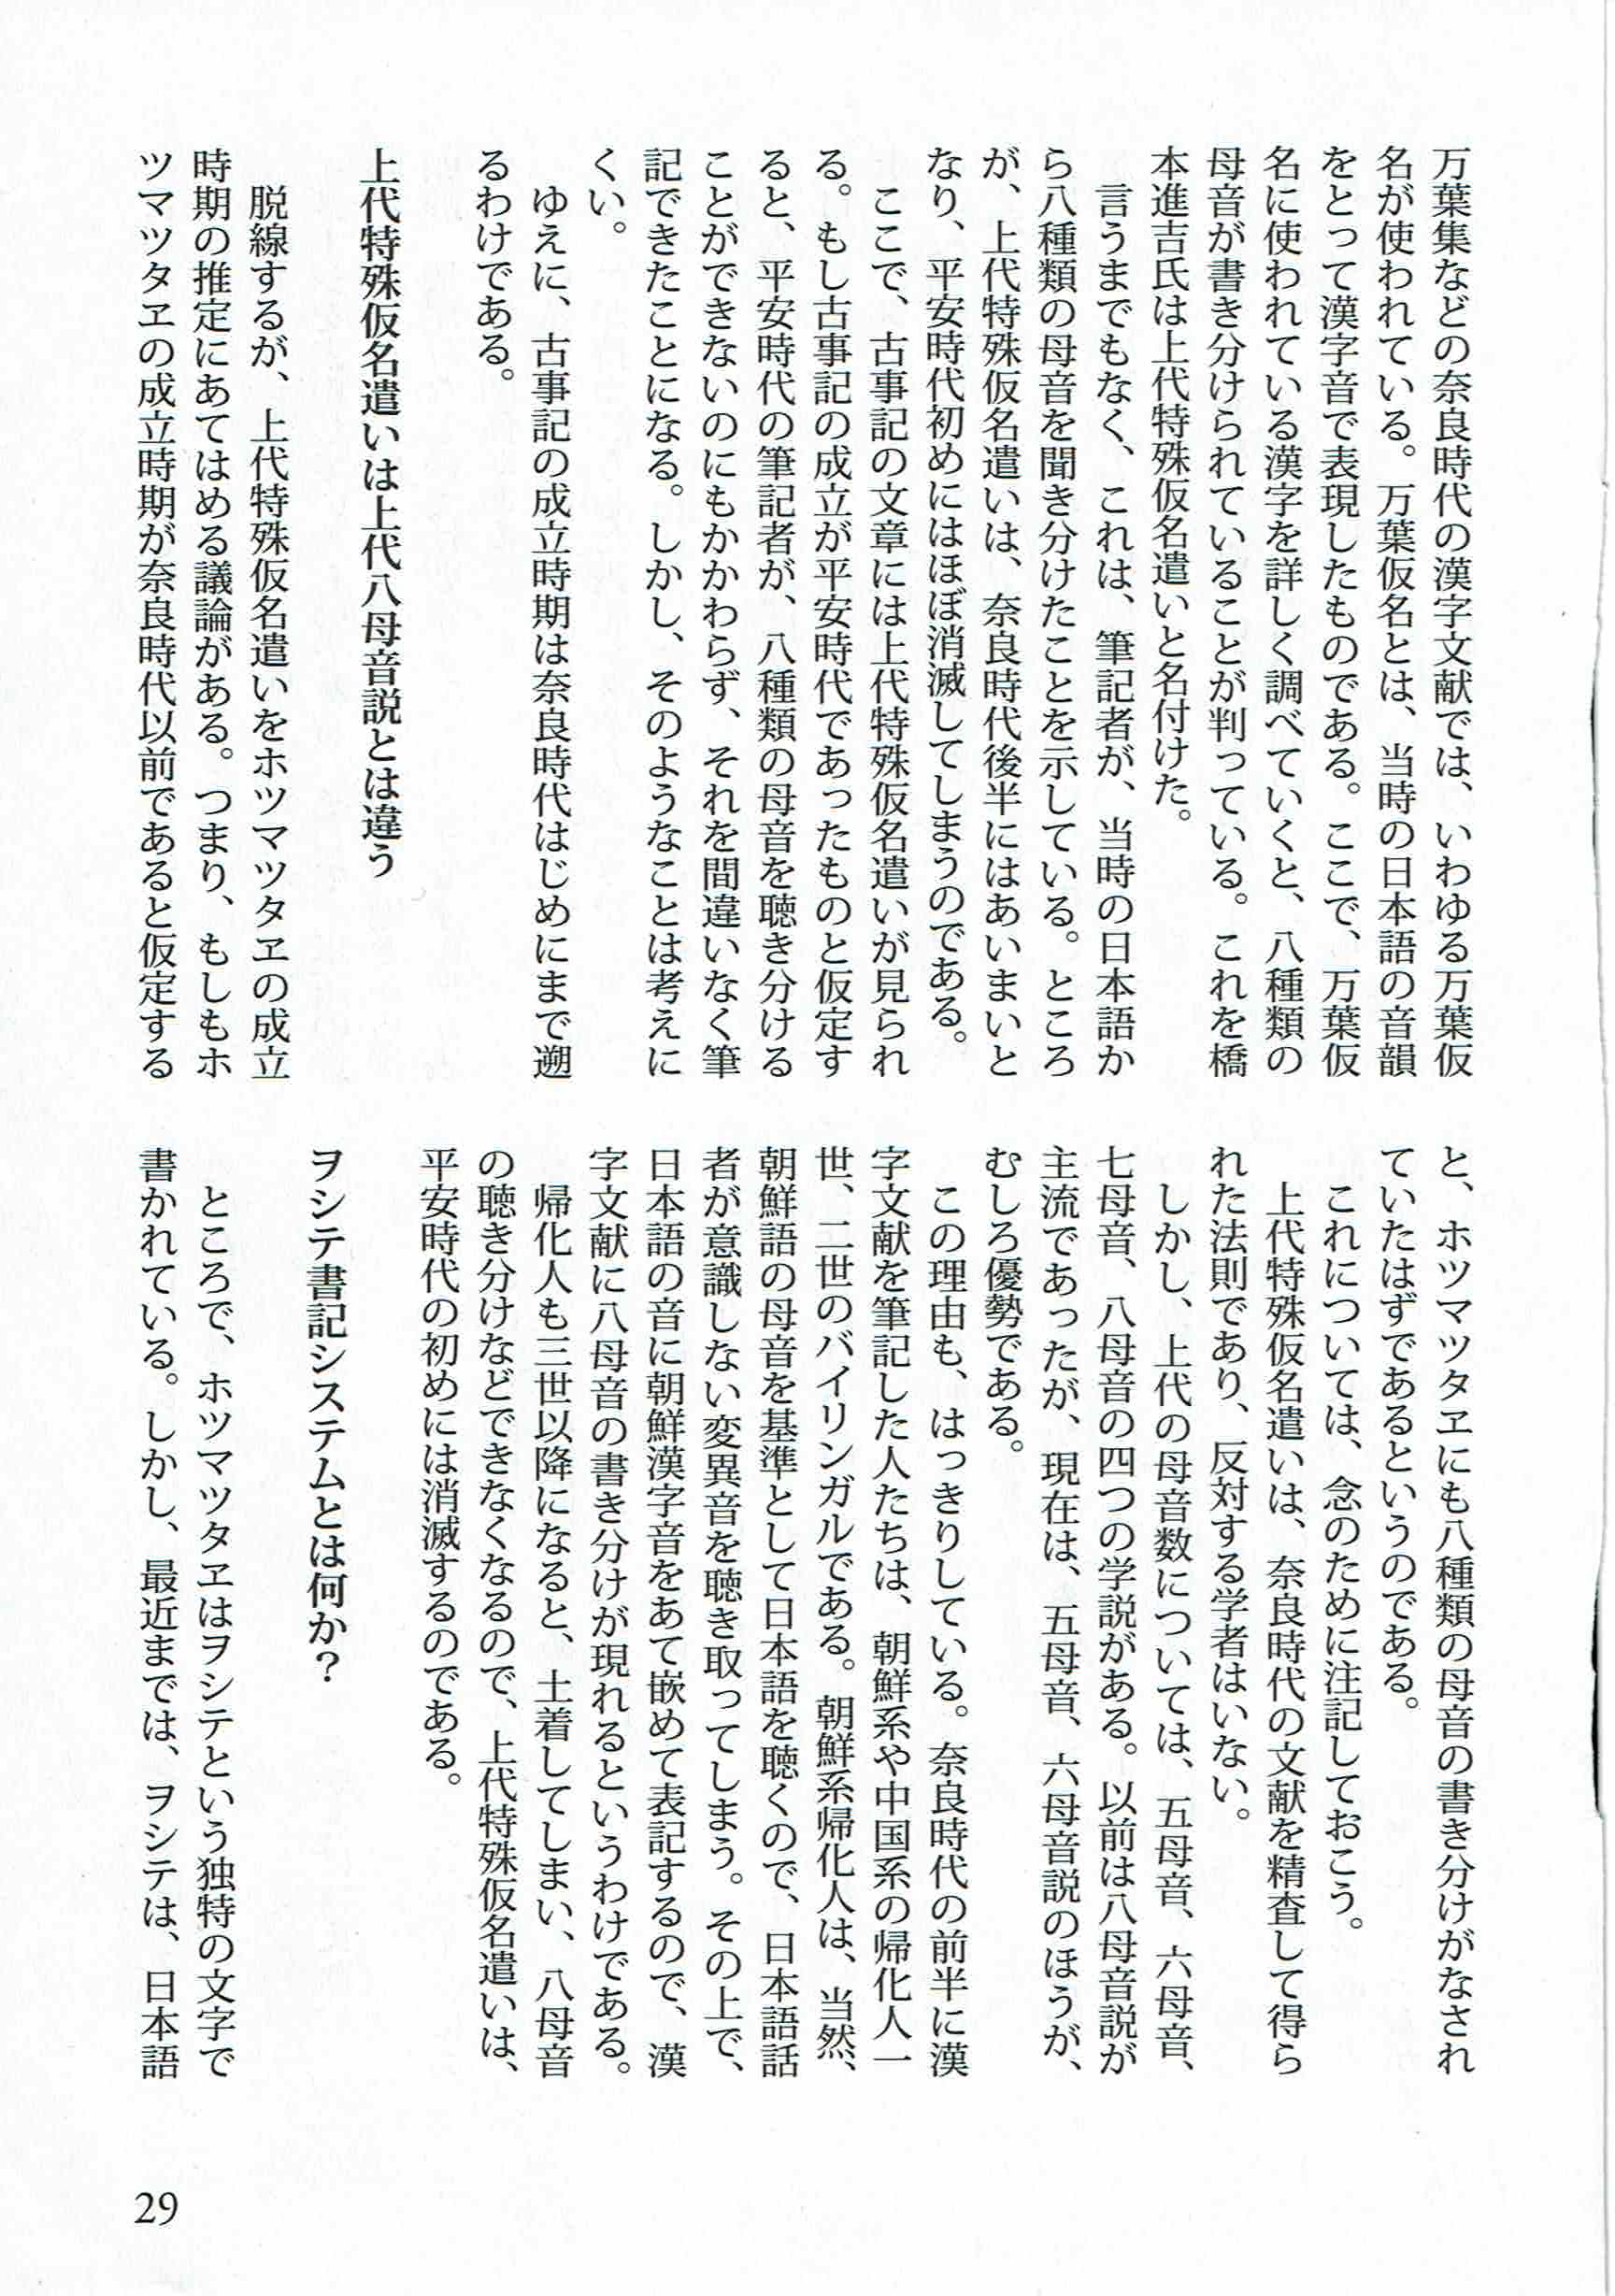 万葉集などの奈良時代の漢字文献では、いわゆる万葉仮
名が使われている。万葉仮名とは、当時の日本語の音韻
をとって漢字音で表現したものである。ここで、万葉仮
名に使われている漢字を詳しく調べていくと、八種類の
母音が書き分けられていることが判っている。これを橋
本進吉氏は上代特殊仮名遣いと名付けた。
言うまでもなく、これは、筆記者が、当時の日本語か
ら八種類の母音を聞き分けたことを示している。ところ
が、上代特殊仮名遣いは、奈良時代後半にはあいまいと
なり、平安時代初めにはほぼ消滅してしまうのである。
ここで、古事記の文章には上代特殊仮名遣いが見られ
る。もし古事記の成立が平安時代であったものと仮定す
ると、平安時代の筆記者が、八種類の母音を聴き分ける
ことができないのにもかかわらず、それを間違いなく筆
記できたことになる。しかし、そのようなことは考えに
くい。
ゆえに、古事記の成立時期は奈良時代はじめにまで遡
るわけである。
上代特殊仮名遣いは上代八母音説とは違う
脱線するが、上代特殊仮名遣いをホツマツタヱの成立
時期の推定にあてはめる議論がある。つまり、もしもホ
ツマツタヱの成立時期が奈良時代以前であると仮定する
と、ホツマツタヱにも八種類の母音の書き分けがなされ
ていたはずであるというのである。
これについては、念のために注記しておこう。
上代特殊仮名遣いは、奈良時代の文献を精査して得ら
れた法則であり、反対する学者はいない。
しかし、上代の母音数については、五母音、六母音、
七母音、八母音の四つの学説がある。以前は八母音説が
主流であったが、現在は、五母音、六母音説のほうが、
むしろ優勢である。
この理由も、はっきりしている。奈良時代の前半に漢
字文献を筆記した人たちは、朝鮮系や中国系の帰化人一
世、二世のバイリンガルである。朝鮮系帰化人は、当然、
朝鮮語の母音を基準として日本語を聴くので、日本語話
者が意識しない変異音を聴き取ってしまう。その上で、
日本語の音に朝鮮漢字音をあて嵌めて表記するので、漢
字文献に八母音の書き分けが現れるというわけである。
帰化人も三世以降になると、土着してしまい、八母音
の聴き分けなどできなくなるので、上代特殊仮名遣いは、
平安時代の初めには消滅するのである。
ヲシテ書記システムとは何か？
ところで、ホツマツタヱはヲシテという独特の文字で
書かれている。しかし、最近までは、ヲシテは、日本語
29